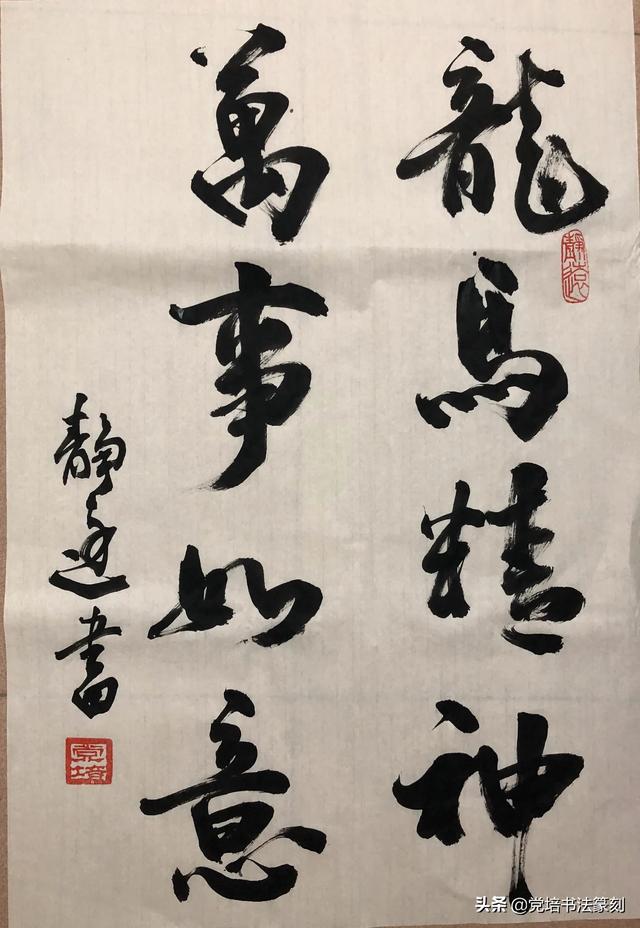 龍馬精神
靜遠
萬事如意
靜遠書
党培
头条 @党培书法篆刻